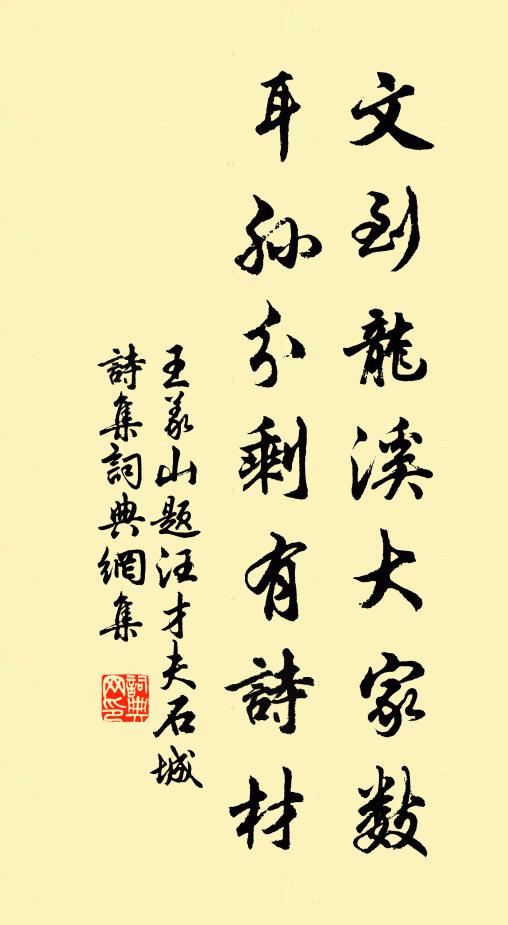 文到龍溪大家數
耳孫分剩有詩材
王義山題汪才夫石城
詩集詞典網集
詞典網印